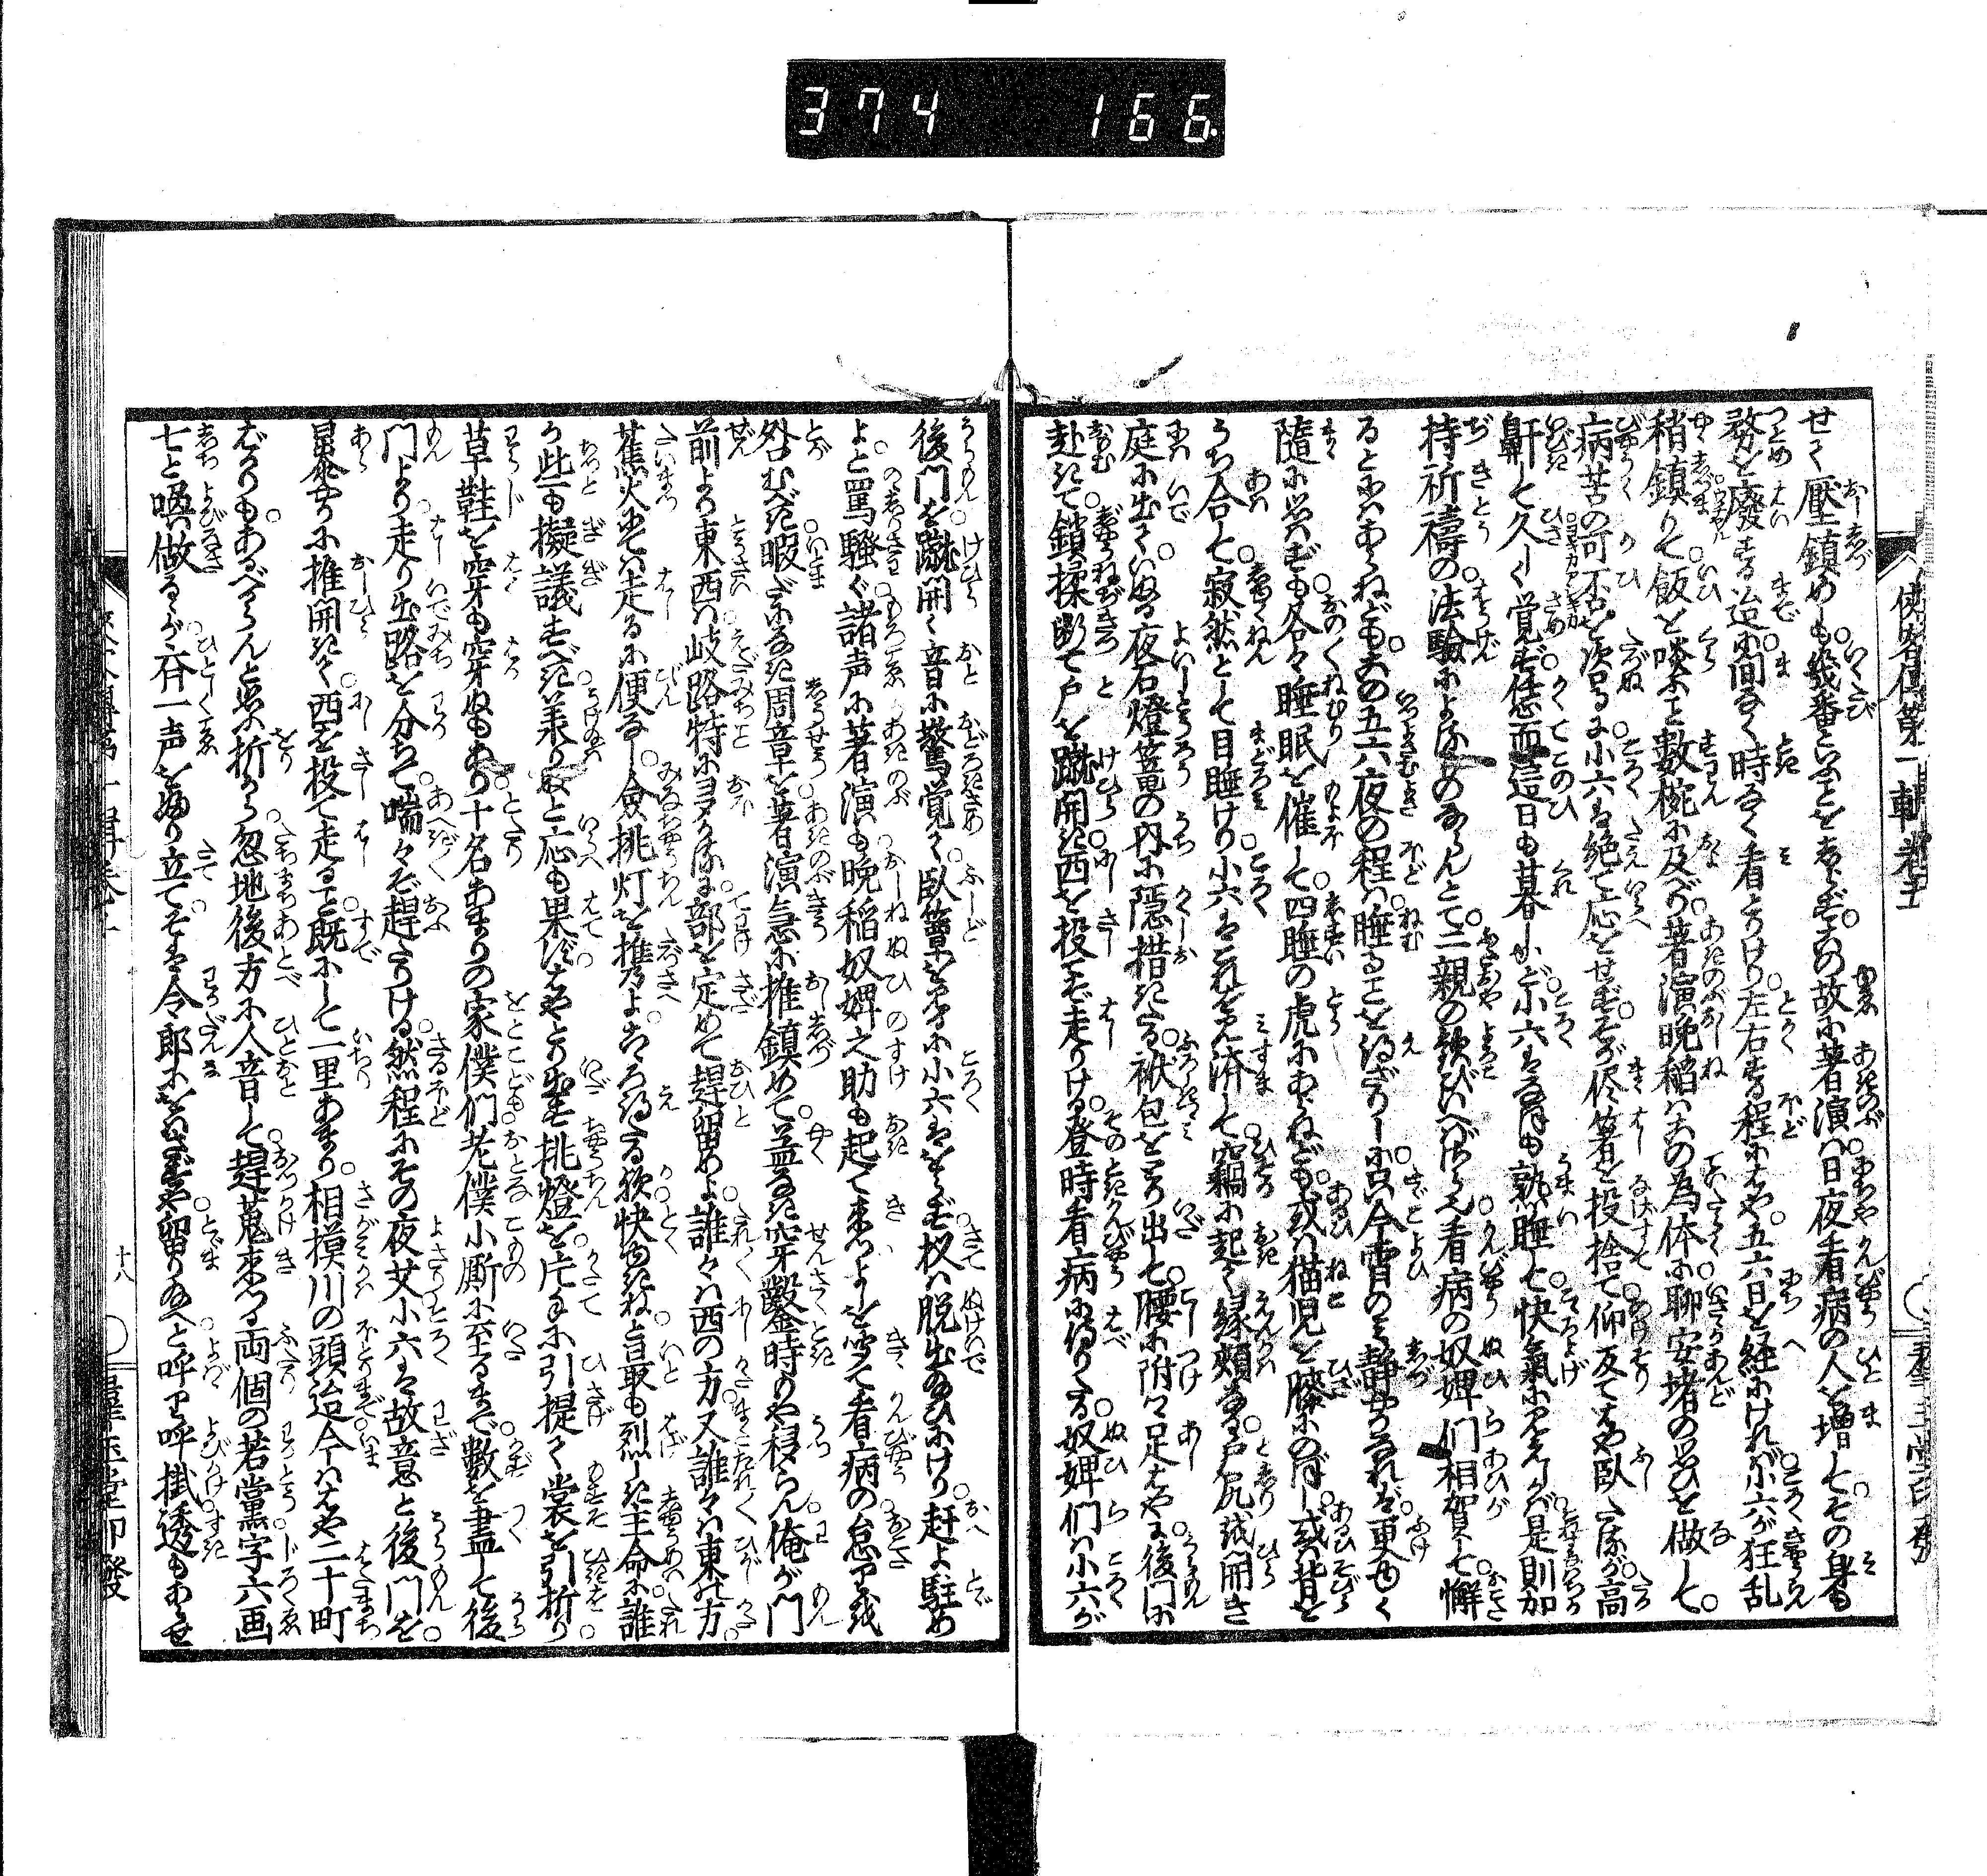 374 166
侠客傳第一輯 巻五
せて壓鎮めしも幾番といふことをしらず。この故に著演は日夜看病の人を増して。その身も
務を廃するまで。間なく時なく看とりけり。左右する程にはや。五六日を経にければ。小六が狂乱
稍鎮りて。飯を啖ふこと數椀に及べば。著演晩稲はこの為体に。聊安堵の思ひを做して。
病苦の可不を須るに。小六は絶て応をせず。そが侭箸を投捨て。仰反てはや臥たるが。高
鼾して久しく覚ず。恁而這日も暮しかど。小六はなほも熟睡して。快氣に見えしかば。是則加
持祈禱の。法驗によるものならんとて。二親の歓びいへばさら也。看病の奴婢們相賀して。懈
るとにはあらねども。この五六夜の程は。睡ることを得ざりしに。今宵のみ静やかなれば。更ゆく
隨に思はずも。各々睡眠を催して。四睡の虎にあらねども。或は猫児を膝にのぼし。或は背を
うち合して。寂然として目睡けり。小六はこれを見済して。窃に起て縁頬なる。戸尻を開き
庭に出て。いぬる夜石燈篭の内に。隠措きたる。袱包をとり出して。腰に附つゝ足はやに。後門に
赴きて。鎖揉断て戸を蹴開き。西を投てぞ走りける。登時看病に侍りたる。奴婢們は小六が
後門を蹴開く音に。驚き覚て臥簟を見るに。小六はをらず。扨は脱出給ひにけり。赶よ駐め
よと罵騒ぐ。諸声に著演も。晩稲奴婢之助も起て来つ。よしを聞て看病の。怠りを
咎むべき。暇だになき周章を。著演急に推鎮めて。益なき穿鑿時や移らん。俺が門
前より東西は。岐路特に多かるに。部を定めて趕留めよ。誰々は西の方。又誰々は東の方。
蕉火では走るに便なし。僉挑灯を推乃よ。こゝろ得たる歟。快ゆきね。と最も烈しき主命に。誰
か些も擬議すべき。羨りぬと応も果ず。はやとり出す挑燈を。片手に引提て裳を引折り
草鞋を穿も穿ぬもあり。十名あまりの家僕們。老僕小厮に至るまで。數を盡して後
門より。走り出路を分ちて。喘々ぞ趕たりける。然程にその夜艾。小六は故意と後門を
暴やかに推開きて。西を投て走ること。既にして一里あまり。相摸川の頭迠。今はや二十町
ばかりもあるべからんと思ふ折から。忽地後方に人音して。趕蒐来つる両個の若黨。字六画
七と喚做るゝが。斉一声をふり立て。そは令郎にをはさずや。留り給へと呼び呼掛。透もあらせ
十八
群玉堂印發